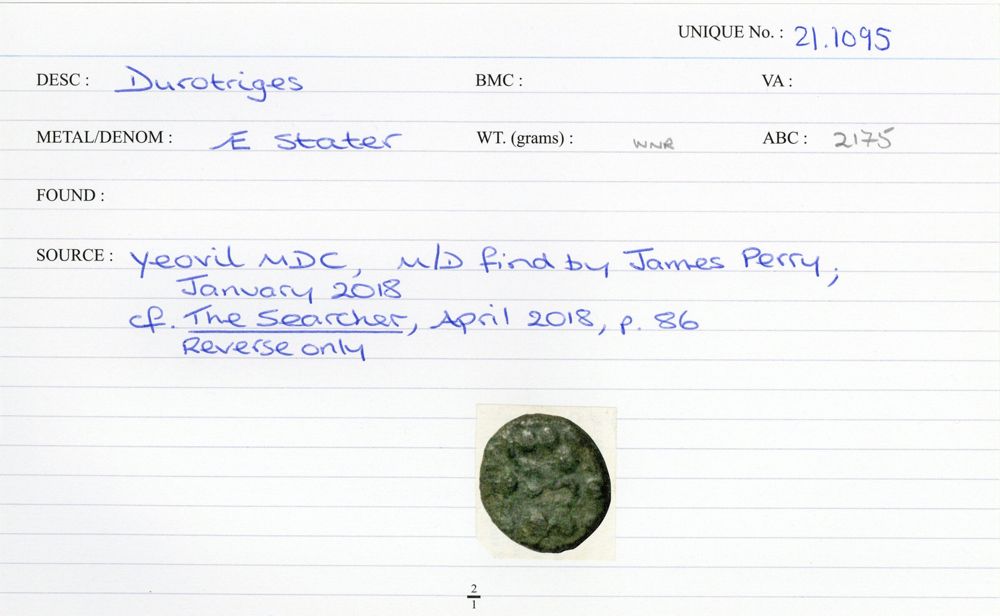 UNIQUE No. : 21.1095
DESC : Durotriges BMC : VA :
METAL/DENOM : Æ Stater WT. (grams) : WNR ABC : 2175
FOUND :
SOURCE : Yeovil MDC, M/D find by James Perry,
January 2018
cf. The Searcher, April 2018, p. 86
Reverse only
2
1